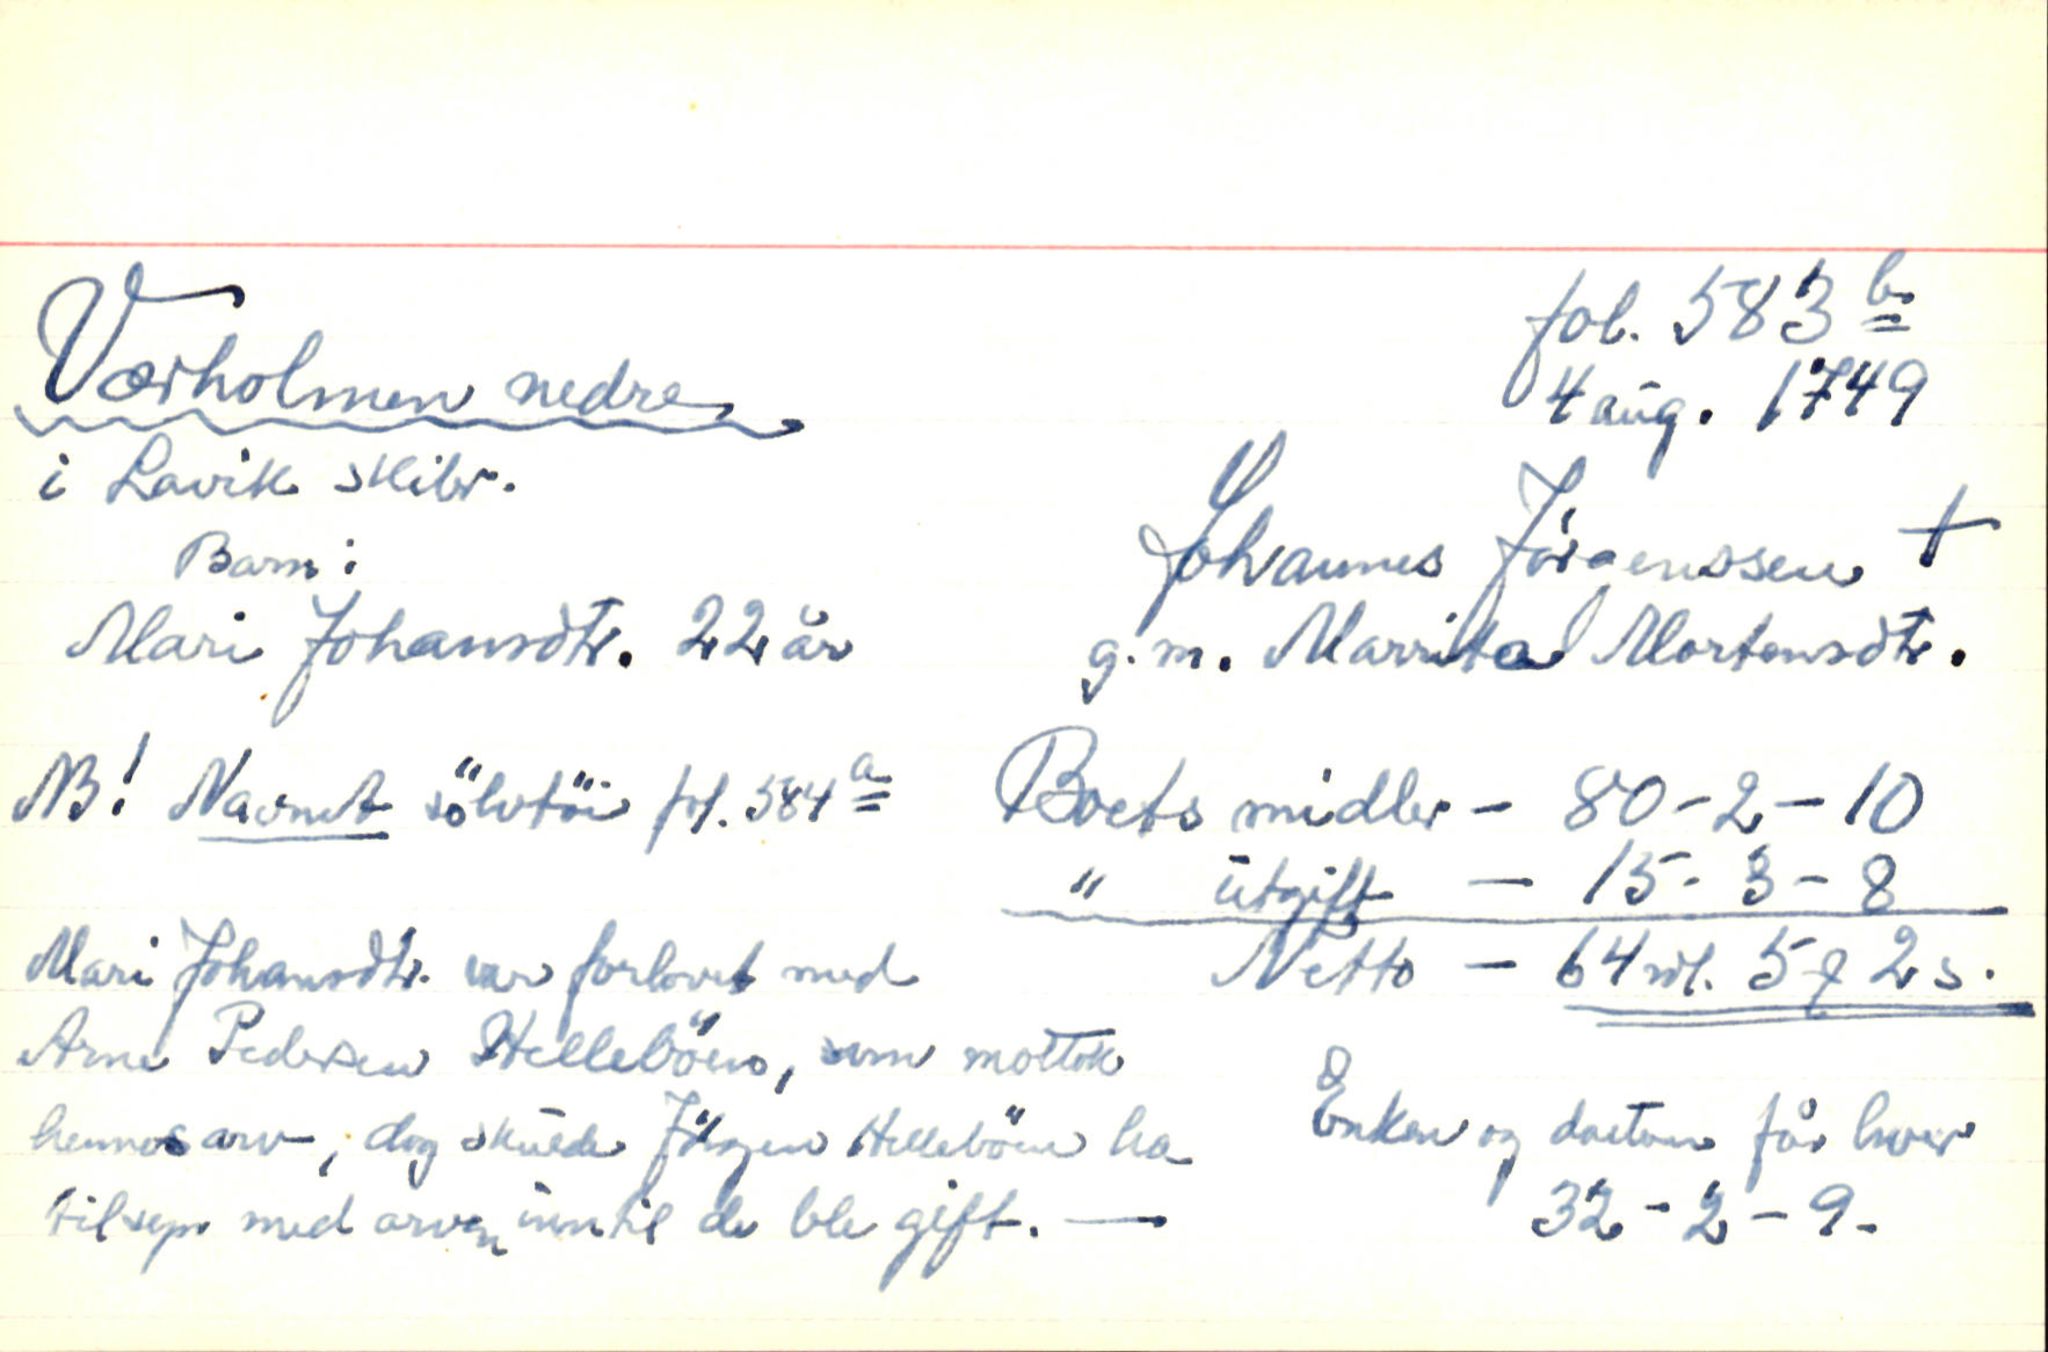 fol. 583 b
4 aug. 1749
Værholmen nedre
i Lavik skibr.
Johannes Jörgenssen †
g. m. Marrita Mortensdtr.
Barn:
Mari Johansdtr. 22 år
NB! Navnet sölvtöi fol. 584 a
Mari Johansdtr. var forlovet med
Arne Pedersen Helleböen, som mottok
hennes arv, dog skulde Jörgen Hellebö ha
tilsyn med arven inntil de ble gift. —
Boets midler — 80 - 2 - 10
" utgift — 15 - 3 - 8
Netto — 64 rdl. 5 2 s.
Enken og datteren får hver
32 - 2 - 9.